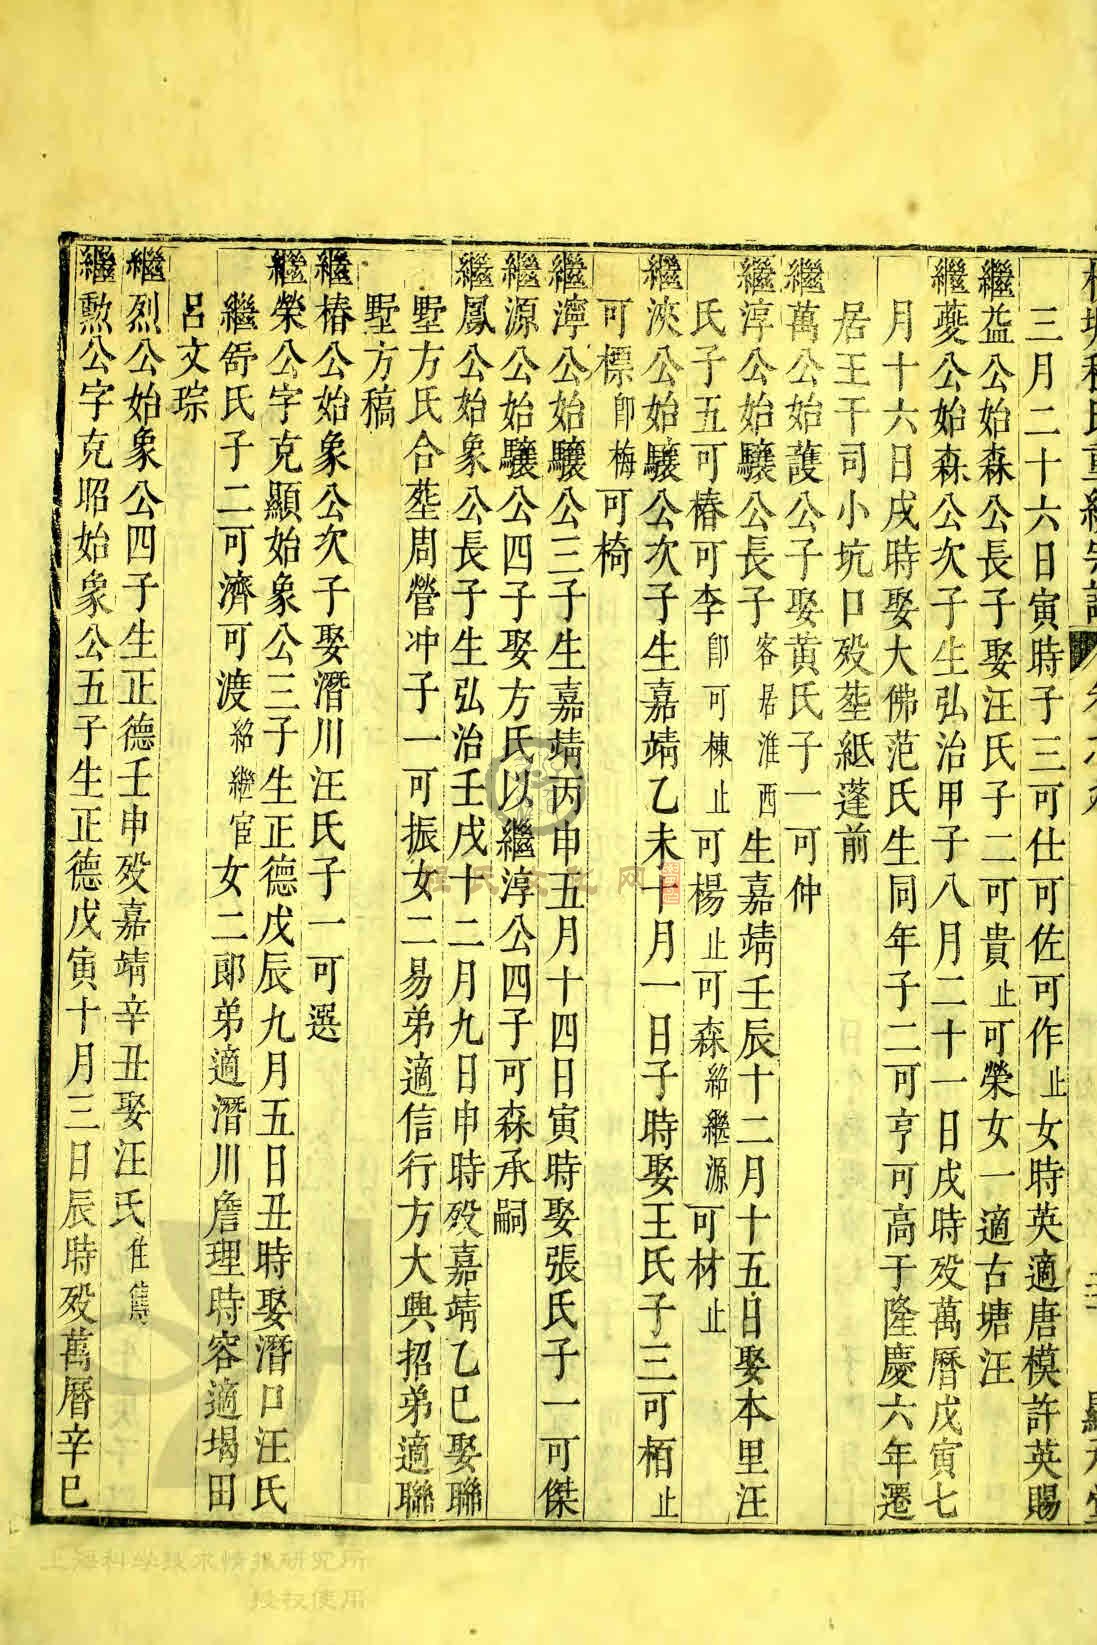 三月二十六日寅時子三可仕可佐可作止女時英適唐模許英賜
繼益公始森公長子娶汪氏子二可貴止可榮女一適古塘汪
繼燕公始森公次子生弘治甲子八月二十一日戌時殁萬曆戊寅七
月十六日戌時娶大佛范氏生同年子二可亨可高于隆慶六年遷
居王干司小坑口殁塟紙蓬前
繼萬公始護公子娶黄氏子一可仲
繼淳公始驤公長子客居淮西生嘉靖壬辰十二月十五日娶本里汪
氏子五可椿可李即可棟止可楊止可森紹繼源可材止
繼浹公始驤公次子生嘉靖乙未十月一日子時娶王氏子三可栢止
可標即梅可椅
繼濘公始驤公三子生嘉靖丙申五月十四日寅時娶張氏子一可傑
繼源公始驤公四子娶方氏以繼淳公四子可森承嗣
繼鳳公始象公長子生弘治壬戌十二月九日申時殁嘉靖乙巳娶聯
墅方氏合塟周營冲子一可振女二易弟適信行方大興招弟適聯
墅方稿
繼椿公始象公次子娶潛川汪氏子一可選
繼榮公字克顯始象公三子生正德戊辰九月五日丑時娶潛口汪氏
繼舒氏子二可濟可渡紹繼宦女二郎弟適潛川詹理時容適堨田
呂文琮
繼烈公始象公四子生正德壬申殁嘉靖辛丑娶汪氏
繼勲公字克昭始象公五子生正德戊寅十月三日辰時殁萬曆辛巳
上海科学技术情报研究所
授权使用